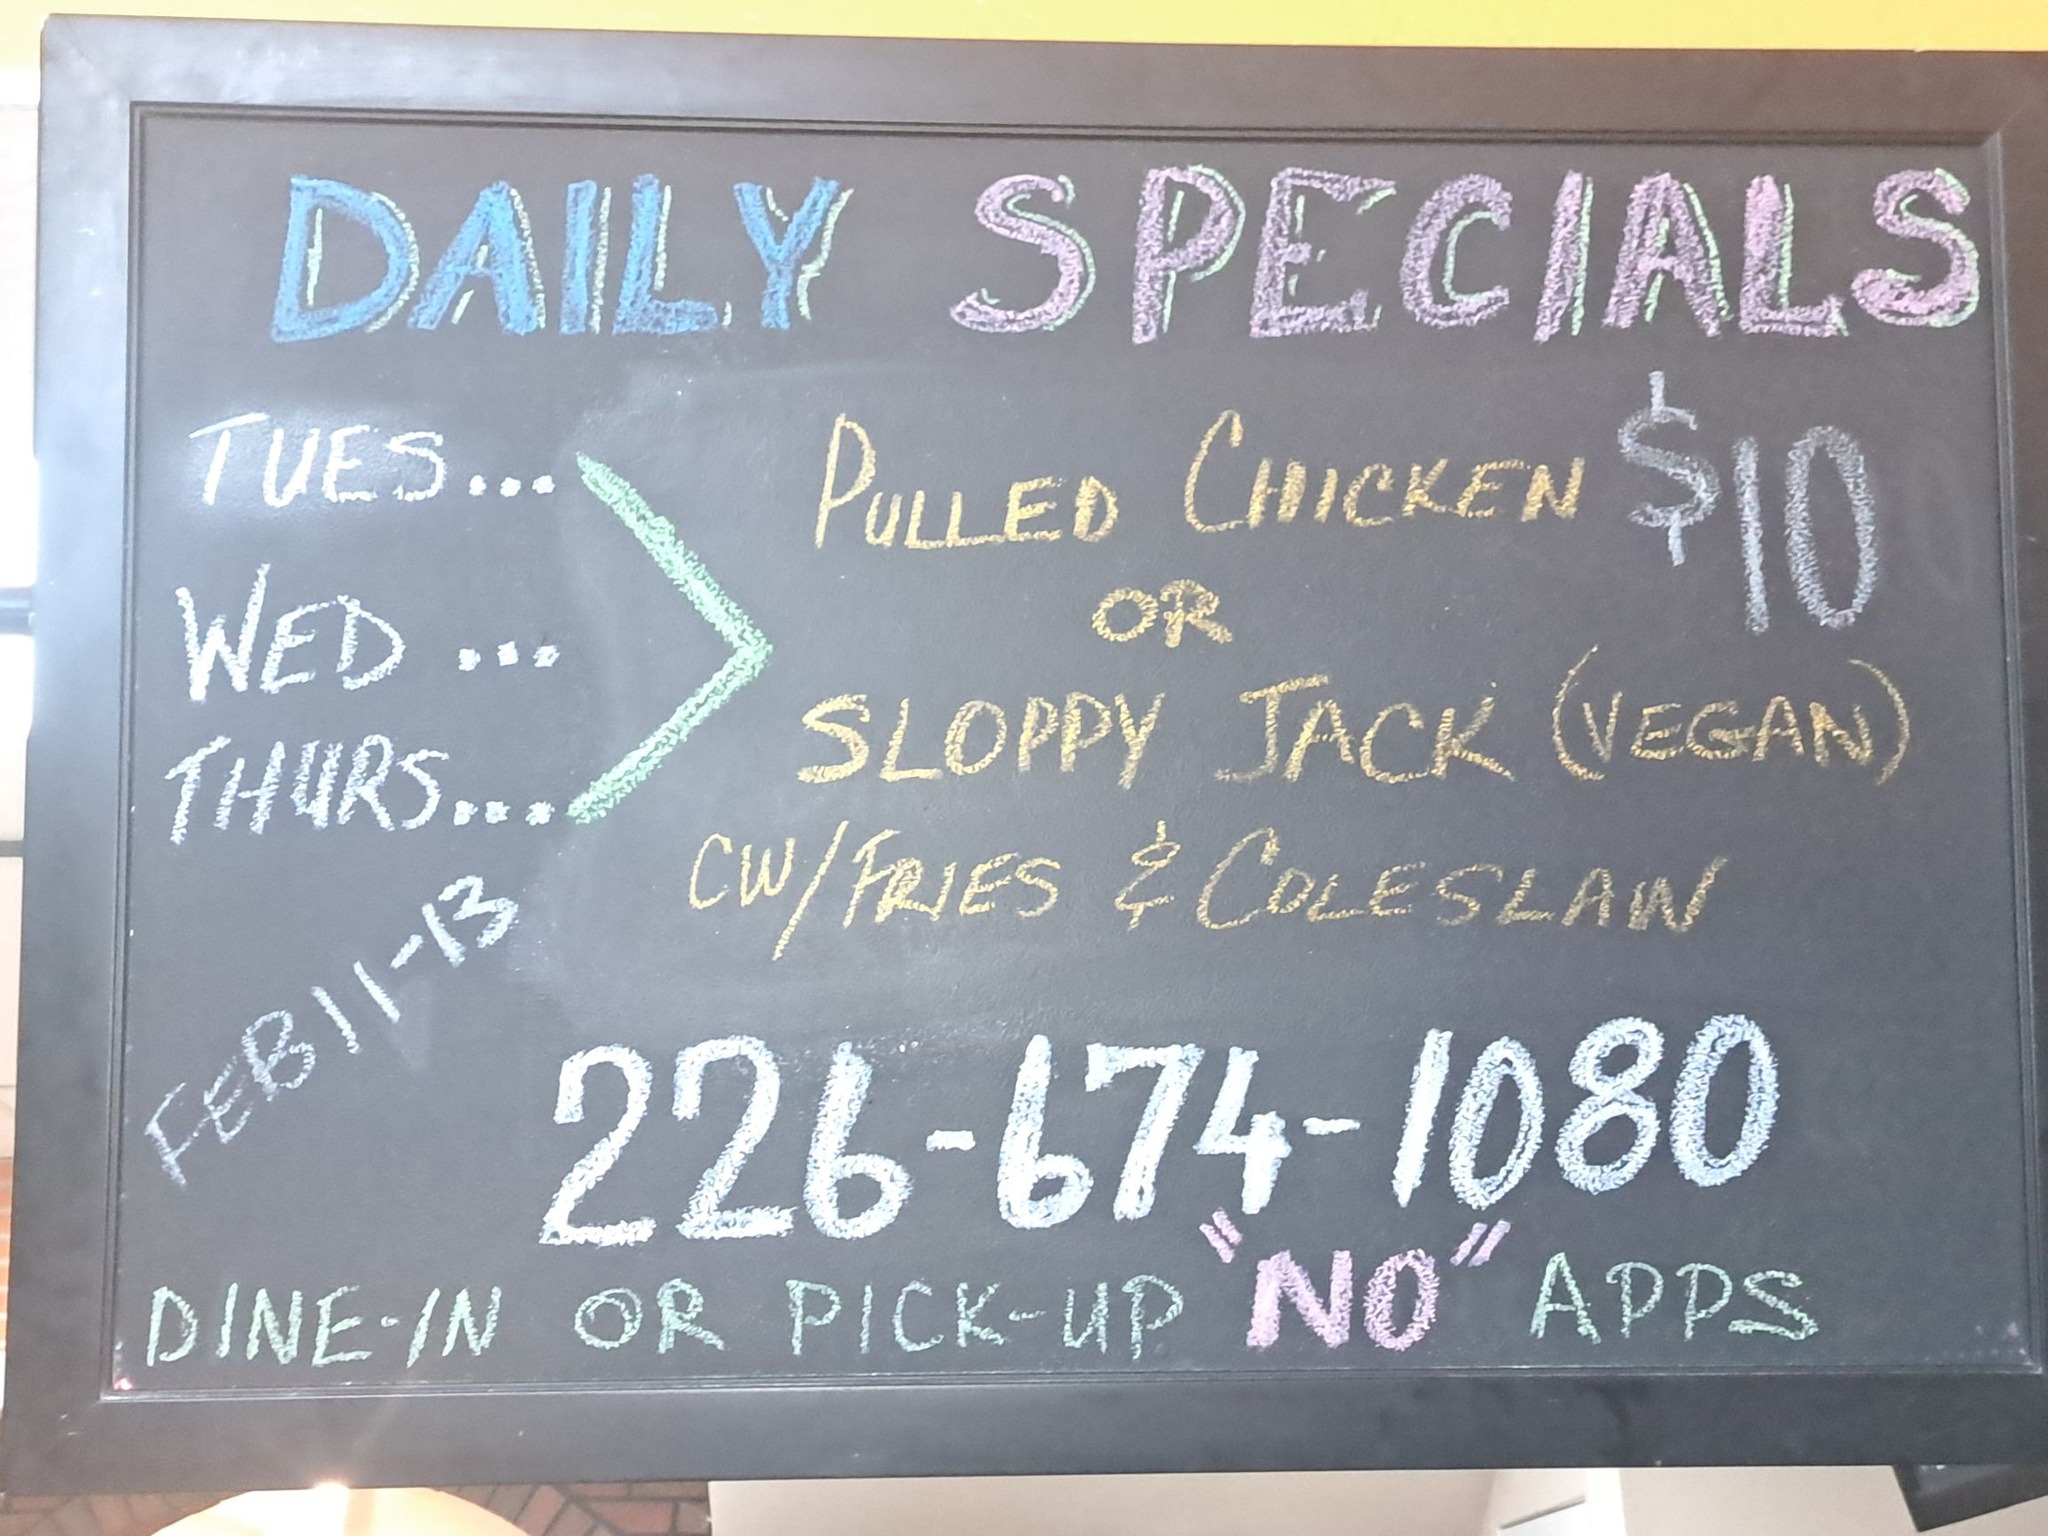 DAILY SPECIALS
TUES... PULLED CHICKEN $10
WED... OR
THURS.... SLOPPY JACK (VEGAN)
CW/FRIES & COLESLAW
FEB 11-13
226-674-1080
DINE-IN OR PICK-UP "NO" APPS